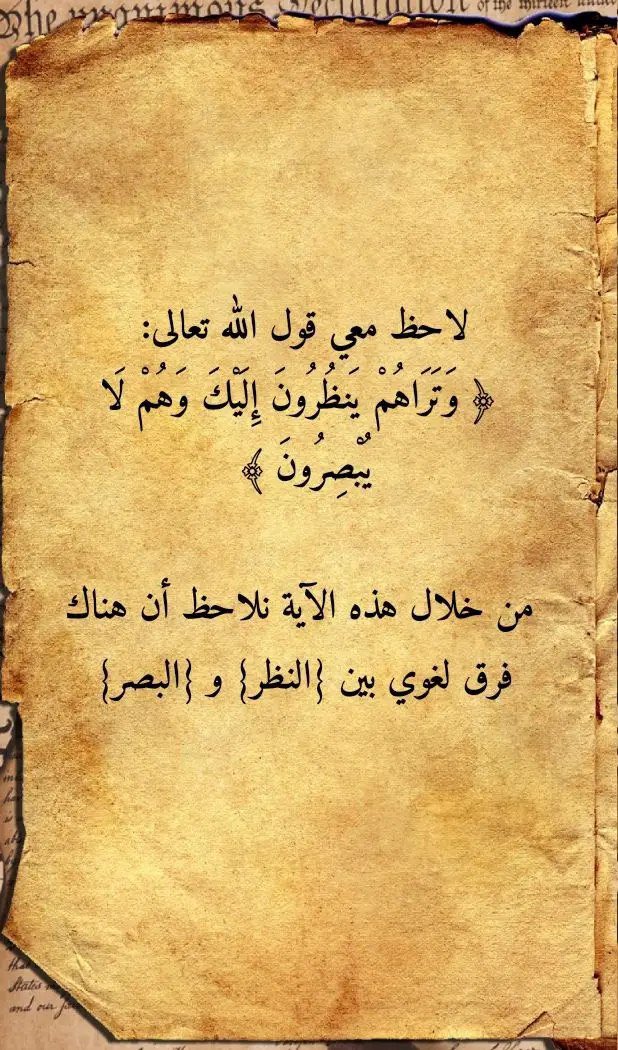 The unanimous Declaration of the thirteen united
لاحظ معي قول الله تعالى:
﴿ وَتَرَاهُمْ يَنظُرُونَ إِلَيْكَ وَهُمْ لَا
يُبْصِرُونَ ﴾
من خلال هذه الآية نلاحظ أن هناك
فرق لغوي بين {النظر} و {البصر}
that
States
and our